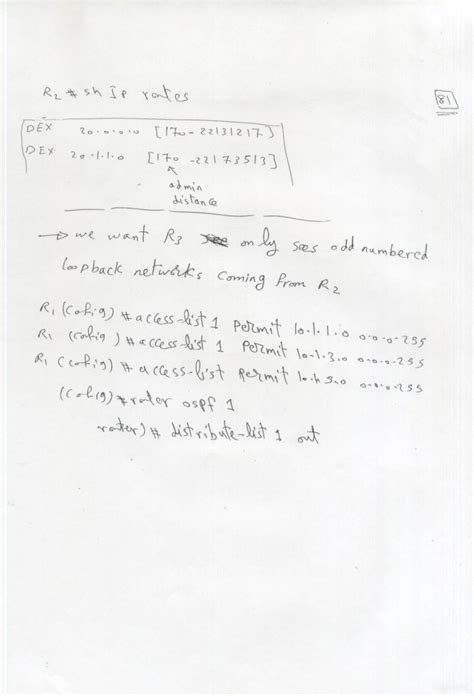 81
R2 # sh Ip routes
DEX 20.0.0.0 [170-22131217]
DEX 20.1.1.0 [170-22173513]
admin
distance
→ we want R3 only sees odd numbered
loopback networks coming from R2
R1 (cofig) # access-list 1 permit 10.1.1.0 0.0.0.255
R1 (cofig) # access-list 1 permit 10.1.3.0 0.0.0.255
R1 (cofig) # access-list permit 0.0.0.255
(cofig) # roter ospf 1
roter) # distribute-list 1 out